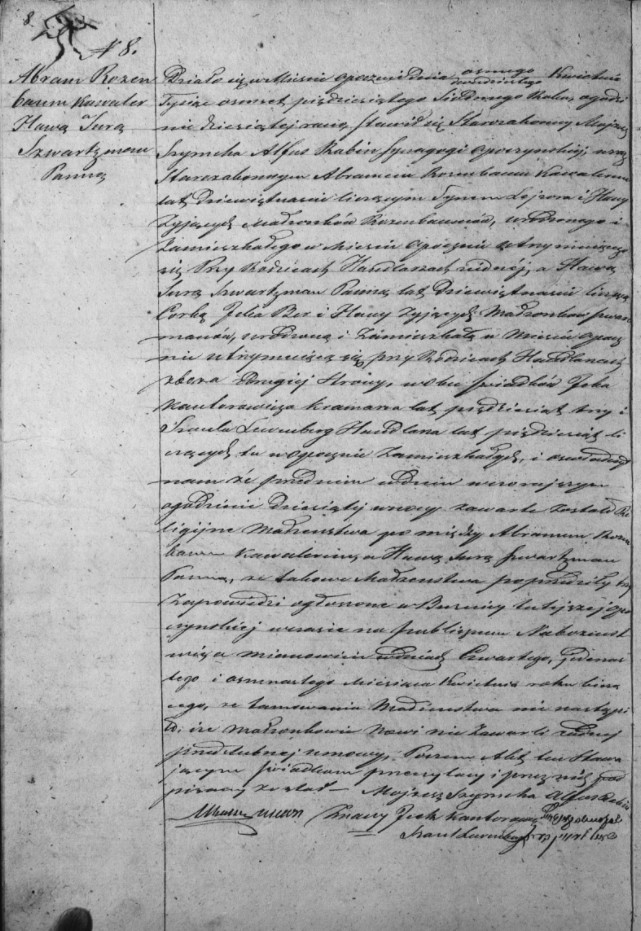 8.
N 8.
Abram Rozen
baum Kawaler
a
Hawa Sura
Szwartzman
Panna
Działo się w Mieście Opocznie dnia osmego Kwietnia
Tysiąc osmset pięćdziesiątego Siódmego Roku, o godzi
nie dziesiątej rano, Stawił się Starozakonny Mojżesz
Szymcha Alfus Rabin Synagogi Opoczynskiej, wraz
Starozakonnym Abramem Rozenbaum Kawalerem
lat Dziewiętnaście liczącym Synem Lejzora i Hany
Żyjących Małżonków Rozenbaumów, urodzonego i
Zamieszkałego w Mieście Opocznie utrzymującego
się Przy Rodzicach Handlarzach i Hawą
Surą Szwartzman Panną lat Dziewiętnaście liczącą
Córką Ber i Hawy Żyjących Małżonków
urodzoną i Zamieszkałą w Mieście Opocz
nie utrzymującą się przy Rodzicach Handlarzach
z Drugiej Strony, w obu świadków Jcka
Kantorowicza Kramarza lat pięćdziesiąt trzy i
Szaula Lewenberg Handlarza lat pięćdziesiąt li
czących tu w Opocznie Zamieszkałych, i oswiadczyli
nam że przed niem w dniu wczorajszym
o godzinie Dziesiątej w nocy zawarte zostało Re
ligijne Małżenstwo po między Abramem Rozen
baum Kawalerem, a Hawą Surą Szwartzman
Panną, że takowe Małżenstwo poprzedziły trzy
Zapowiedzi ogłoszone w Bużnicy tutejszej Opo
czynskiej w czasie na publicznem Nabożenst
wie, a mianowicie w dniach Czwartego, Jedenas
tego i osmnastego Miesiąca Kwietnia roku bieżą
cego, że tamowanie Małżenstwa nie nastąpi
ło, że Małżonkowie Nowi nie Zawarli żadnej
przedslubnej umowy. Poczem Akt ten Stawa
jącym i świadkom przeczytany i przez nich pod
pisany został — Mojżesz Szymcha Alfus Rabin
Znany Jcek Kantorowicz
Szaul Lewenberg